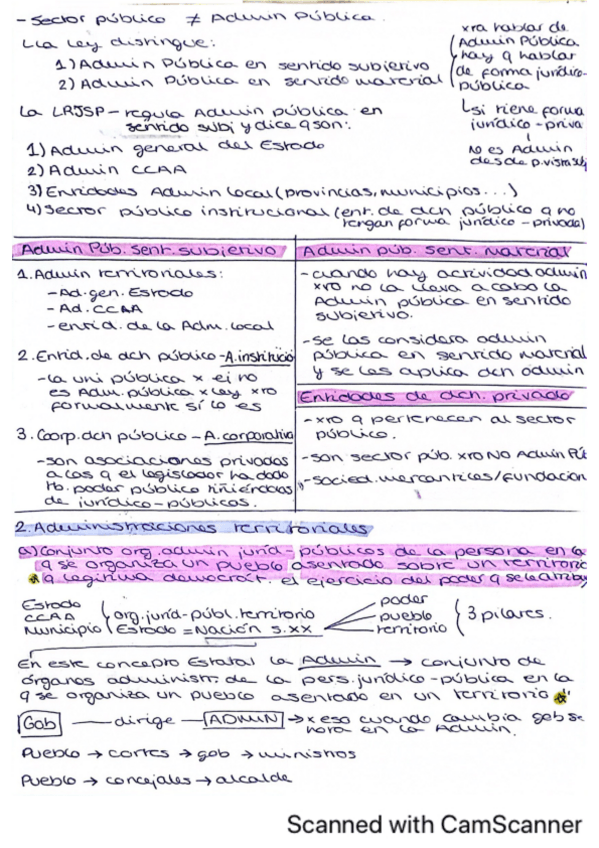 - Sector público ≠ Admin Pública.
La ley distingue:
1) Admin Pública en sentido subjetivo
2) Admin Pública en sentido material
xra hablar de
Admin Pública
hay q hablar
de forma jurídico-
pública
si tiene forma
jurídico-priva
NO es Admin
desde p.vista subj
La LRJSP - regula Admin pública en
sentido subj y dice q son:
1) Admin general del Estado
2) Admin CCAA
3) Entidades Admin local (provincias, municipios...)
4) Sector público institucional (ent. de dch público q no
tengan forma jurídico-privada)
Admin Púb. sent. subjetivo
1. Admin territoriales:
- Ad. gen. Estado
- Ad. CCAA
- entid. de la Adm. local
2. Entid. de dch público - A. institucio
- la uni pública x ej no
es Adm. pública x ley xro
formalmente sí lo es
3. Corp. dch público - A. corporativa
- son asociaciones privadas
a las q el legislador ha dado
to. poder público tiñiéndolas
de jurídico-públicos.
Admin púb. sent. material
- cuando hay actividad admin
xro no la lleva a cabo la
Admin pública en sentido
subjetivo.
- se las considera admin
pública en sentido material
y se les aplica dch admin
Entidades de dch. privado
- xro q pertenecen al sector
público.
- son sector púb. xro NO Admin Púb
- socied. mercantiles/fundacion
2. Administraciones territoriales
a) Conjunto org. admin juríd-públicos de la persona en la
q se organiza un pueblo asentado sobre un territorio
q legitima democrát. el ejercicio del poder q se le atribuy
Estado
CCAA
Municipio
org. juríd-públ. territorio
Estado = Nación s.XX
poder
pueblo
territorio
3 pilares.
En este concepto Estatal la Admin → conjunto de
órganos administr. de la pers. jurídico-pública en la
q se organiza un pueblo asentado en un territorio
Gob — dirige — ADMIN → x eso cuando cambia gob se
nota en la Admin.
Pueblo → cortes → gob → ministros
Pueblo → concejales → alcalde
Scanned with CamScanner